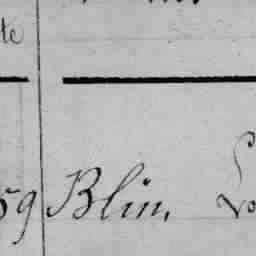 te
59 Blin,